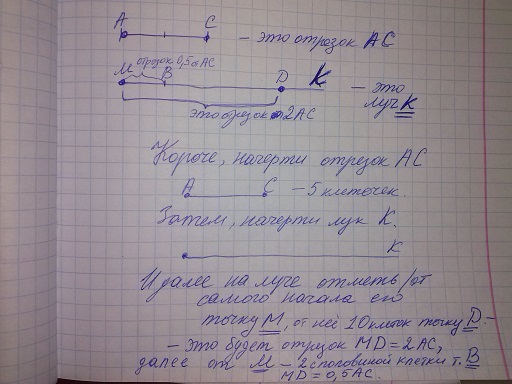 А С
– это отрезок АС
отрезок 0,5 АС
М В D К
– это
луч К
это отрезок 2АС
Короче, начерти отрезок АС
А С – 5 клеточек.
Затем, начерти луч К.
К
И далее на луче отметь/от
самого начала его
точку М, от неё 10 клеток точку D –
– это будет отрезок MD = 2АС,
далее от М – 2 с половиной клетки т. В
MD = 0,5АС.